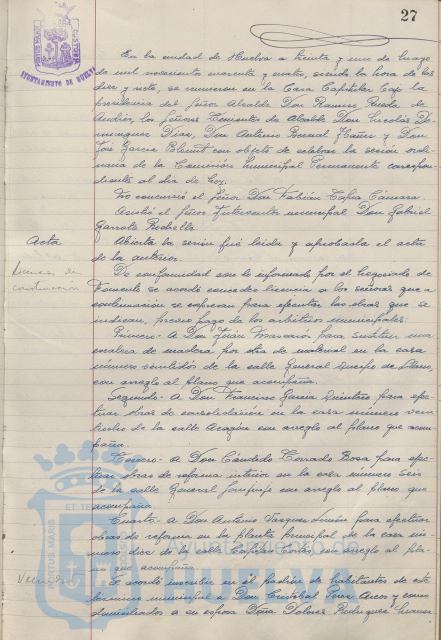 27
PORTUS MARIS
AYUNTAMIENTO DE HUELVA
En la ciudad de Huelva a treinta y uno de mayo
de mil novecientos cuarenta y cuatro, siendo la hora de las
diez y siete, se reunieron en la Casa Capitular bajo la
presidencia del Señor Alcalde Don Ramiro
los Señores Tenientes de Alcalde Don Nicolás Do-
minguez Diaz, Don Antonio Bernal y Don
José Garcia con objeto de celebrar la sesión ordi-
naria de la Comisión Municipal Permanente correspon-
diente al dia de hoy.
No concurrió el Señor Don Fabián Tapia Cámara
Asistió el Señor Interventor municipal Don Gabriel
Garrote
Acta
Abierta la sesión fué leida y aprobada el acta
de la anterior.
Licencias de
construcción
De conformidad con lo informado por el Negociado de
Fomento se acordó conceder licencia a los señores que a
continuación se expresan para ejecutar las obras que se
indican, previo pago de los arbitrios municipales:
Primero.- A Don Juan para sustituir una
escalera de madera por otra de material en la casa
número veintidós de la calle General Queipo de Llano,
con arreglo al plano que acompaña.
Segundo.- A Don Francisco Garcia Quintero para efec-
tuar obras de consolidación en la casa número vein-
tiocho de la calle Aragón con arreglo al plano que acom-
paña.
Tercero.- A Don Cándido Conrado Rosa para efec-
tuar obras de reforma interior en la casa número seis
de la calle General Sanjurjo con arreglo al plano que
acompaña
Cuarto.- A Don Antonio Vazquez Limón para efectuar
obras de reforma en la planta principal de la casa nú-
mero diez de la calle Capitán Cortés con arreglo al pla-
no que acompaña
Vecindad
Se acordó inscribir en el padrón de habitantes de este
término municipal a Don Cristóbal Perez Arcos y como
domiciliados a su esposa Doña Dolores Rodriguez
PORTUS MARIS ET TE
Ayuntamiento de
HUELVA